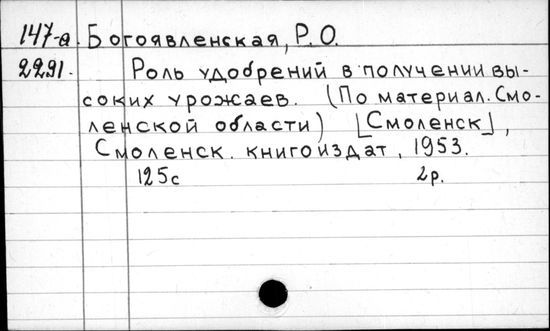 147-а. Богоявленская, Р.О.
2291. Роль удобрений в получении вы-
соких урожаев. (По материал. Смо-
ленской области) [Смоленск],
Смоленск. книгоиздат, 1953.
125с 2р.